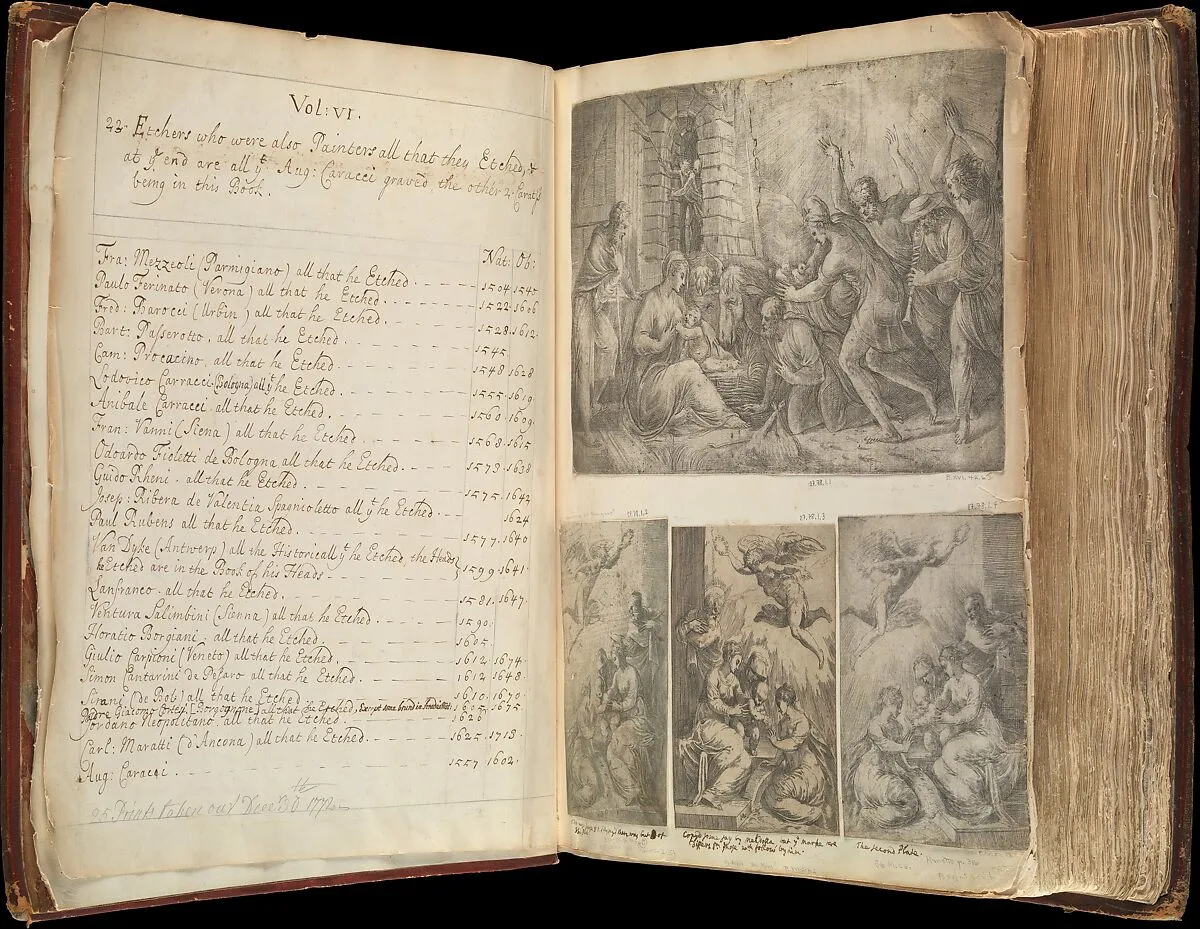 Vol: VI.
22 Etchers who were also Painters all that they Etched, &
at ye end are all yt Aug: Caracci graved the other 2 Carats
being in this Book.
Nat: Ob:
Fra: Mezzeoli (Parmigiano) all that he Etched 1504 1540
Paulo Ferinato (Verona) all that he Etched 1522 1606
Fred: Barocci (Urbin) all that he Etched 1528 1612
Bart: Passerotto. all that he Etched 1545
Cam: Procacino. all that he Etched 1548 1628
Lodovico Carracci (Bologna) all yt he Etched 1555 1619
Anibale Carracci. all that he Etched 1560 1609
Fran: Vanni (Siena) all that he Etched 1568 1615
Odoardo Fioletti de Bologna all that he Etched 1573 1638
Guido Rheni. all that he Etched 1575 1642
Josep: Ribera de Valentia Spagnioletto all yt he Etched 1624
Paul Rubens all that he Etched 1577 1640
Van Dyke (Antwerp) all the Historically yt he Etched, the Heads
he Etched are in the Book of his Heads 1599 1641
Lanfranco. all that he Etched 1581 1647
Ventura Salimbini (Sienna) all that he Etched 1590
Horatio Borgiani. all that he Etched 1605
Giulio Carpioni (Veneto) all that he Etched 1612 1674
Simon Cantarini de Pesaro all that he Etched 1612 1648
Sirani (de Bol:) all that he Etched 1610 1670
Padre Giacomo [Borgognone] all that he Etched, Except some bound in 1605 1675
Jordano Neopolitano. all that he Etched 1626
Carl: Maratti (d'Ancona) all that he Etched 1625 1713
Aug: Caracci 1557 1602
25 Prints taken out Decr 30th 1772
1.
27.78.1.1
B.XVI.
17.78.1.2
27.78.1.3
27.78.1.4
Copy'd some say by
The second Plate.